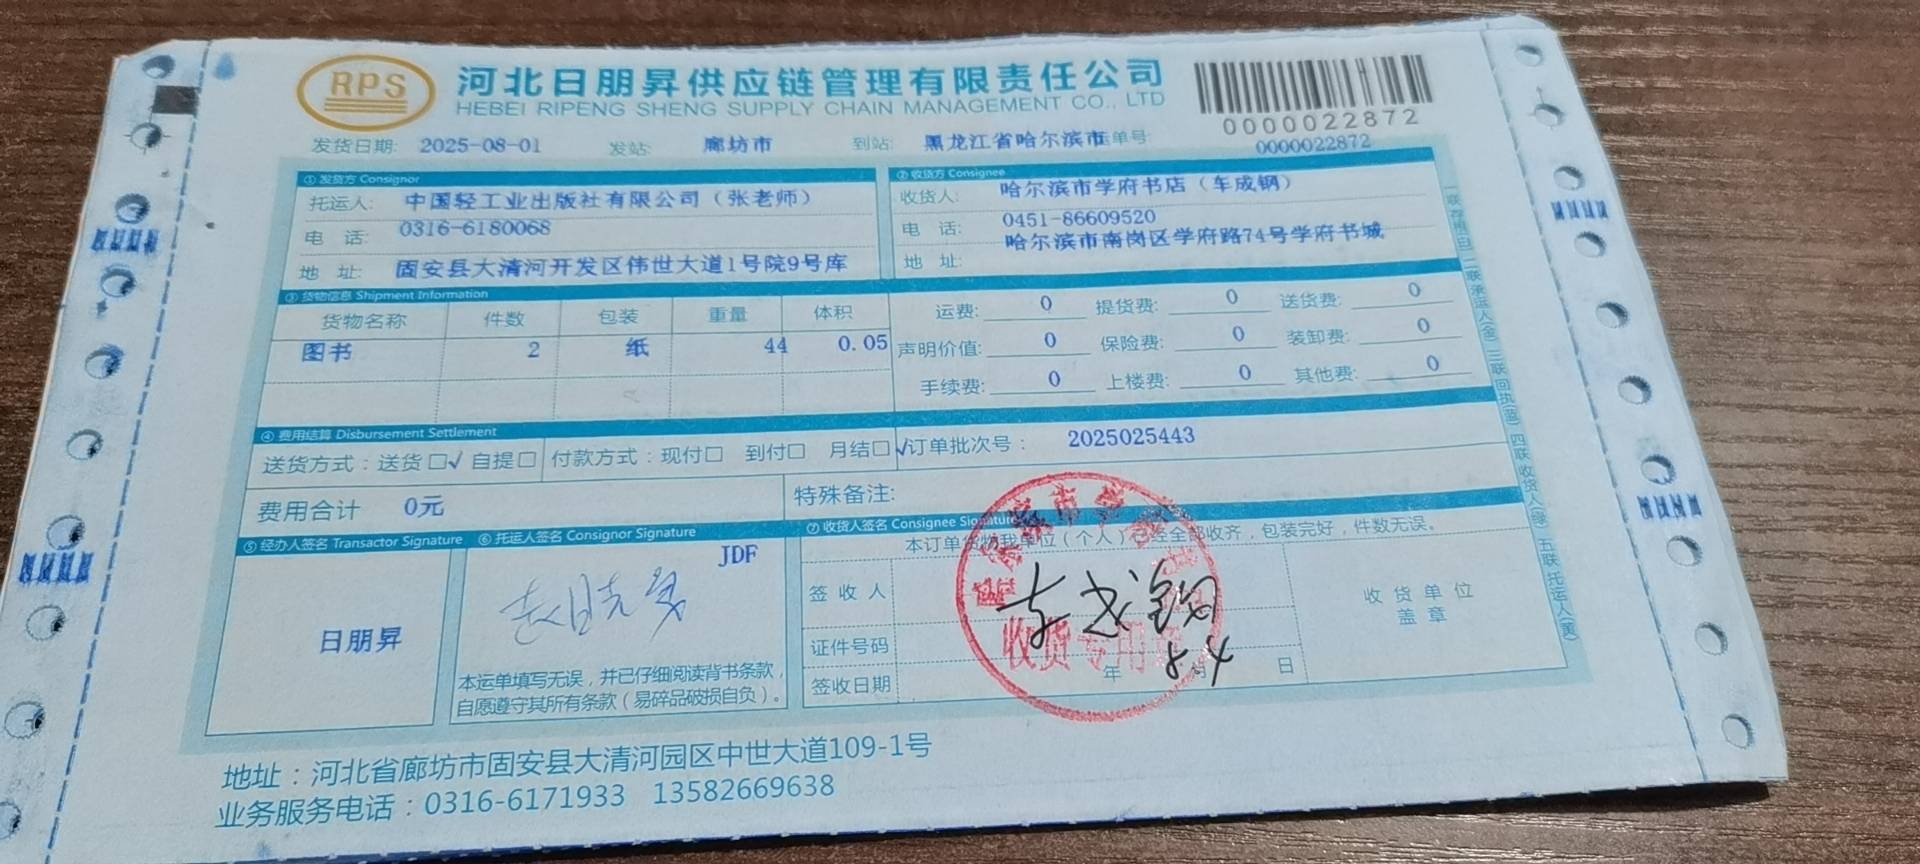 RPS
河北日朋昇供应链管理有限责任公司
HEBEI RIPENG SHENG SUPPLY CHAIN MANAGEMENT CO., LTD
0000022872
发货日期: 2025-08-01 发站: 廊坊市 到站: 黑龙江省哈尔滨市 单号: 0000022872
① 发货方 Consignor
托运人: 中国轻工业出版社有限公司（张老师）
电 话: 0316-6180068
地 址: 固安县大清河开发区伟世大道1号院9号库
② 收货方 Consignee
收货人: 哈尔滨市学府书店（车成钢）
电 话: 0451-86609520
地 址: 哈尔滨市南岗区学府路74号学府书城
③ 货物信息 Shipment Information
货物名称 件数 包装 重量 体积
图书 2 纸 44 0.05
运费: 0 提货费: 0 送货费: 0
声明价值: 0 保险费: 0 装卸费: 0
手续费: 0 上楼费: 0 其他费: 0
④ 费用结算 Disbursement Settlement
送货方式：送货□√ 自提□ 付款方式：现付□ 到付□ 月结□√ 订单批次号： 2025025443
费用合计 0元
特殊备注:
⑤ 经办人签名 Transactor Signature
日朋昇
⑥ 托运人签名 Consignor Signature
JDF
本运单填写无误，并已仔细阅读背书条款，
自愿遵守其所有条款（易碎品破损自负）。
⑦ 收货人签名 Consignee Signature
本订单货物我单位（个人）已经全部收齐，包装完好，件数无误。
签 收 人
证件号码
签收日期 年 月 日
8.4
收货专用
收 货 单 位
盖 章
地址：河北省廊坊市固安县大清河园区中世大道109-1号
业务服务电话：0316-6171933 13582669638